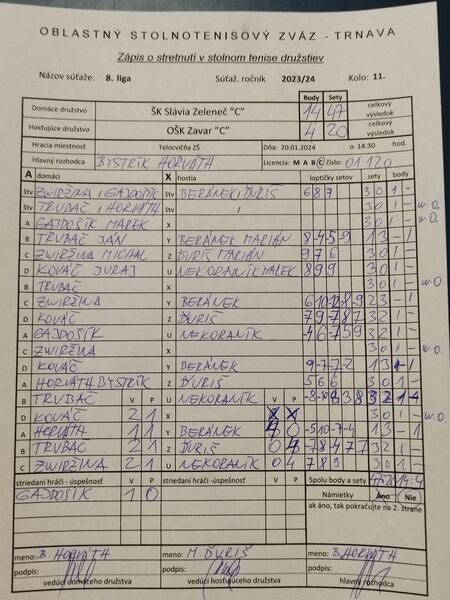 OBLASTNÝ STOLNOTENISOVÝ ZVÄZ - TRNAVA
Zápis o stretnutí v stolnom tenise družstiev
Názov súťaže: 8. liga Súťaž. ročník 2023/24 Kolo: 11.
Body Sety
Domáce družstvo ŠK Slávia Zeleneč "C" 14 47 celkový výsledok
Hosťujúce družstvo OŠK Zavar "C" 4 20 celkový výsledok
Hracia miestnosť Telocvičňa ZŠ Dňa: 20.01.2024 o 14:30 hod.
Hlavný rozhodca BYSTRÍK HORVÁTH Licencia: M A B C číslo: 01120
A domáci X hostia loptičky setov sety body
štv ZWIRŽINA, GAJDOŠÍK štv BERÁNEK, ĎURIŠ 6 8 7 3 0 1 -
štv TRUBAČ, HORVÁTH štv , 3 0 1 - w.o.
A GAJDOŠÍK MAREK X 3 0 1 - w.o.
B TRUBAČ JÁN Y BERÁNEK MARIÁN 8 -4 -5 -9 1 3 - 1
C ZWIRŽINA MICHAL Z ĎURIŠ MARIÁN 9 7 6 3 0 1 -
D KOVÁČ JURAJ U NEKORANÍK MAREK 8 9 9 3 0 1 -
B TRUBAČ X 3 0 1 - w.o
C ZWIRŽINA Y BERÁNEK 2 3 - 1
D KOVÁČ Z ĎURIŠ 3 2 1 -
A GAJDOŠÍK U NEKORANÍK -4 6 7 5 9 3 2 1 -
C ZWIRŽINA X 3 0 1 - w.o.
D KOVÁČ Y BERÁNEK 9 -7 -7 -2 1 3 - 1
A HORVÁTH BYSTRÍK Z ĎURIŠ 5 6 6 3 0 1 -
B TRUBAČ V P U NEKORANÍK V P 3 2 1 -
D KOVÁČ 2 1 X 3 0 1 - w.o.
A HORVÁTH 1 1 Y BERÁNEK 4 0 -5 10 -7 -4 1 3 - 1
B TRUBAČ 2 1 Z ĎURIŠ 0 4 3 2 1 -
C ZWIRŽINA 2 1 U NEKORANÍK 0 4 7 8 9 3 0 1 -
striedaní hráči - domáci V P striedaní hráči - hostia V P Spolu body a sety 47 20 14 4
GAJDOŠÍK 1 0 Námietky Áno Nie
ak áno, tak pokračujte na 2. strane
meno: B. HORVÁTH meno: M. ĎURIŠ meno: B. HORVÁTH
podpis: podpis: podpis:
vedúci domáceho družstva vedúci hosťujúceho družstva hlavný rozhodca